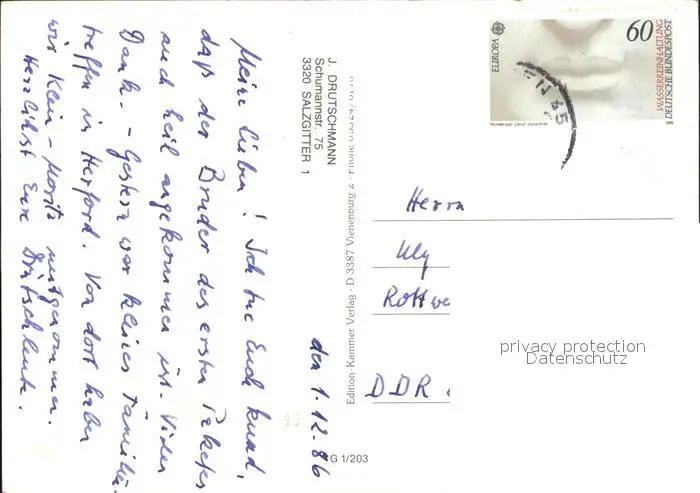 J. DRUTSCHMANN
Schumannstr. 75
3320 SALZGITTER 1
den 1.12.86
Meine Lieben! Ich tue Euch kund,
daß der Bruder des ersten Paketes
auch heil angekommen ist. Vielen
Dank. – Gestern war kleines Familien-
treffen in Herford. Von dort haben
wir Klein-Moritz mitgenommen.
Herzlichst Eure Drutschleute.
Edition-Kammer Verlag · D 3387 Vienenburg 2
G 1/203
EUROPA
60
WASSERREINHALTUNG
DEUTSCHE BUNDESPOST
Herrn
Uly
Rottwe
DDR
privacy protection
Datenschutz